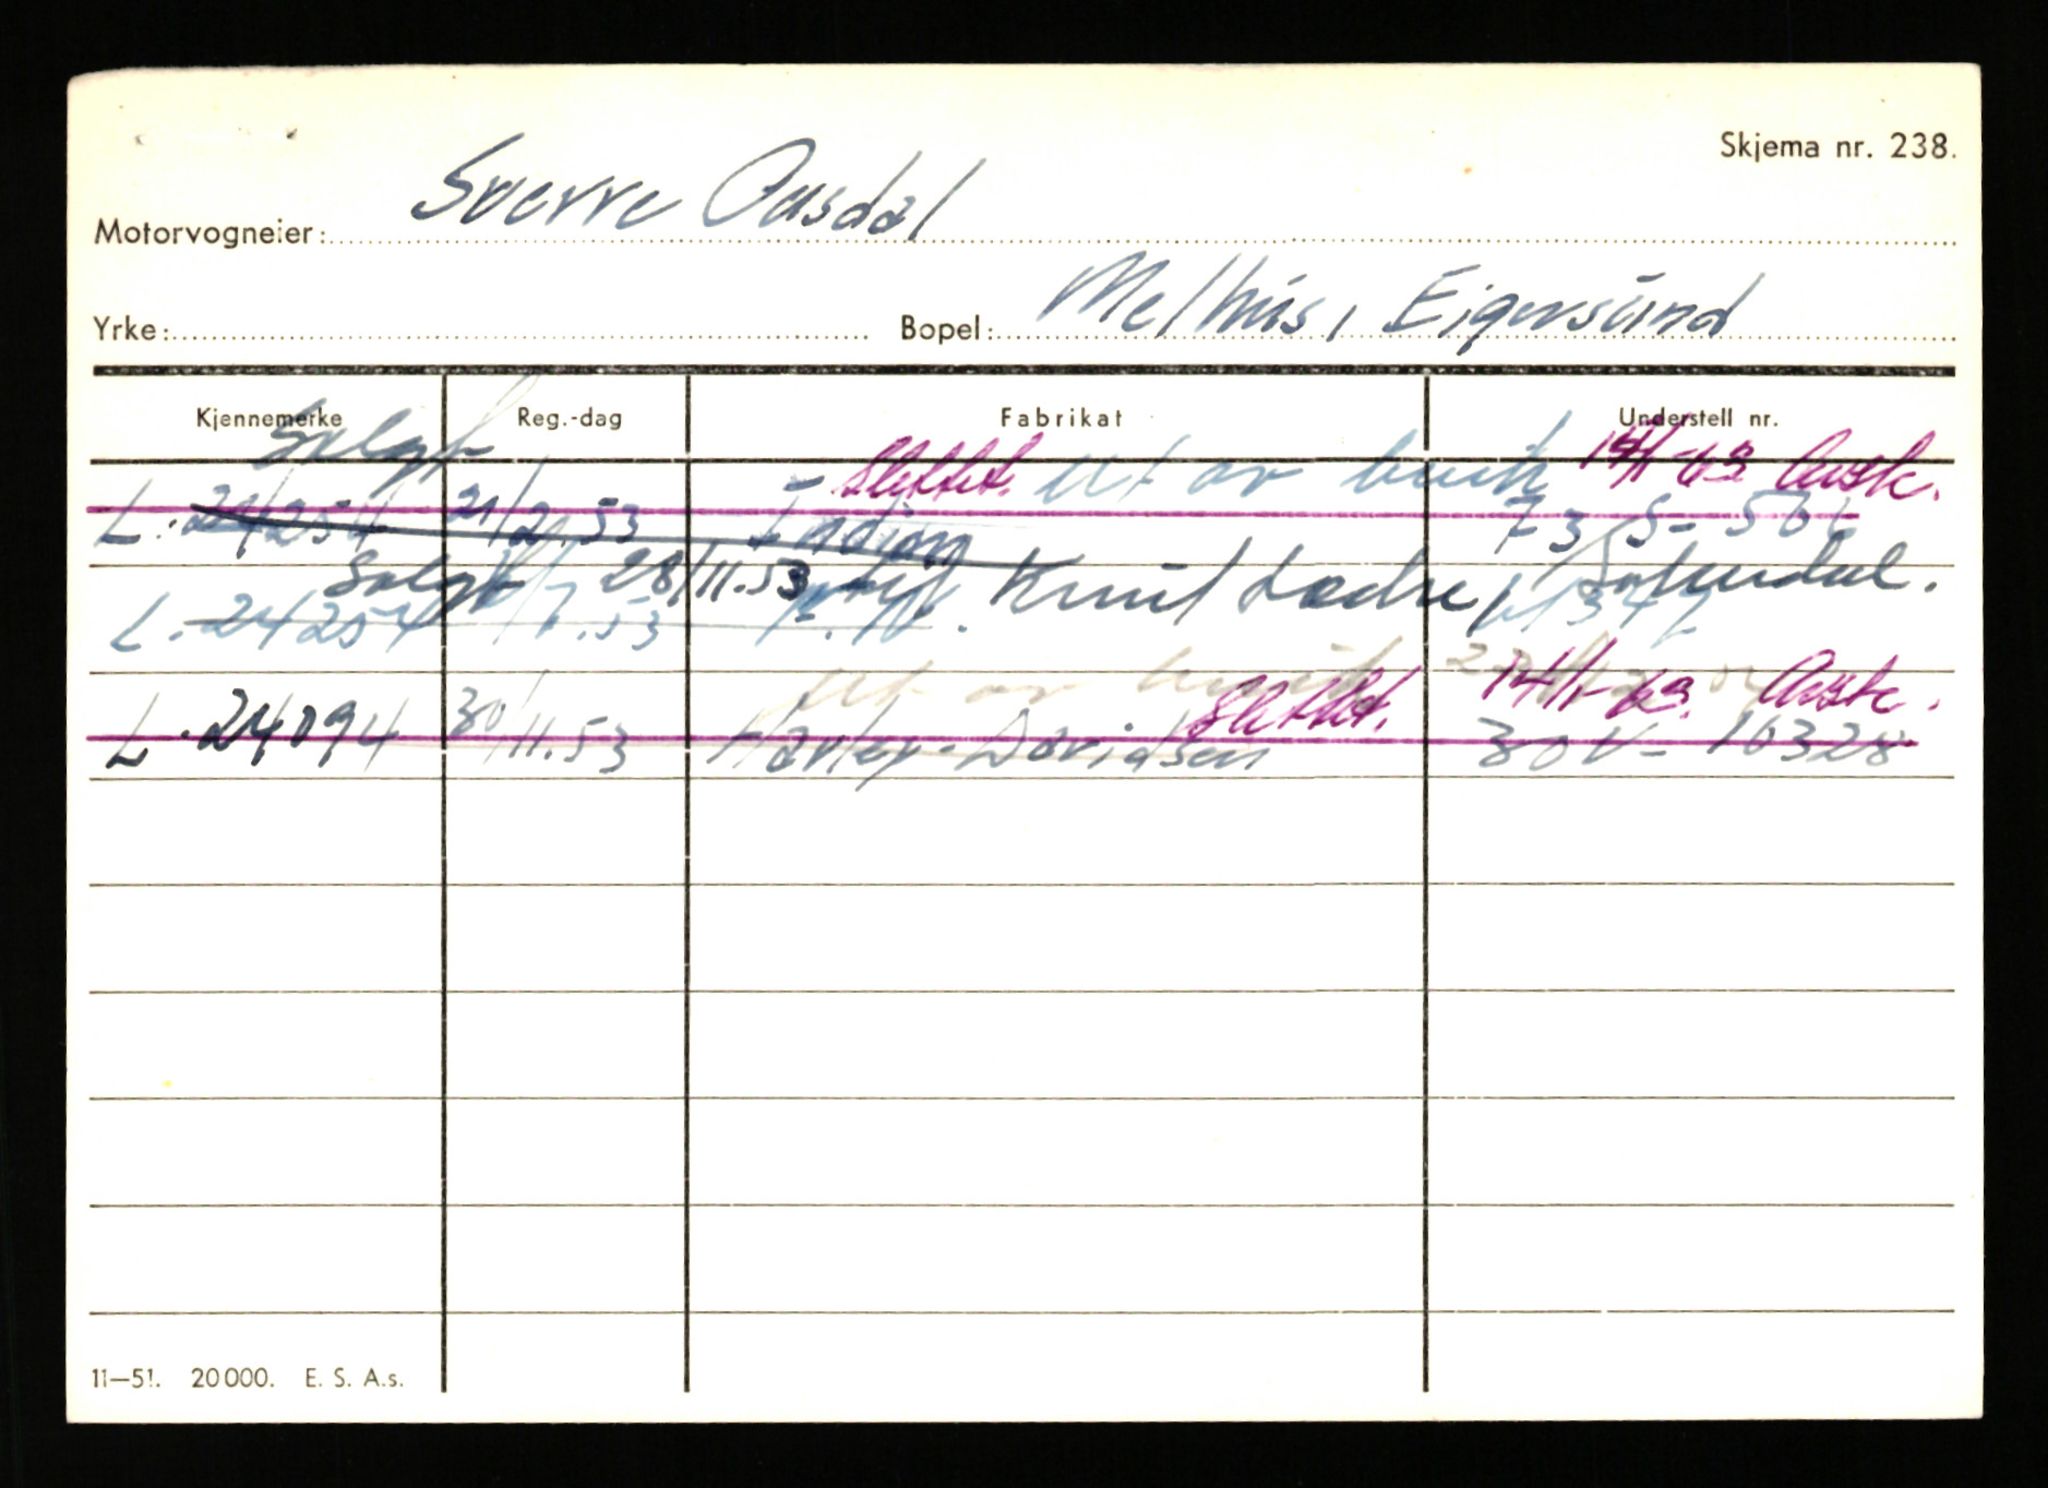 Skjema nr. 238.
Motorvogneier: Sverre Ousdal
Yrke: Bopel: Melhus, Eigersund
Kjennemerke Reg.-dag Fabrikat Understell nr.
Solgt Slettet. Ut av bruk 14/1-63 Ansk.
L. 24254 21/2.53 Indian 73 S- 501
Solgt 28/11.53 til Knut Lædre, Sokndal.
L. 24254 /7.53
Ut av bruk Slettet. 14/1-63. Ansk.
L. 24094 30/11.53 Harley-Davidson 30V- 16328
11—51. 20 000. E. S. A.s.